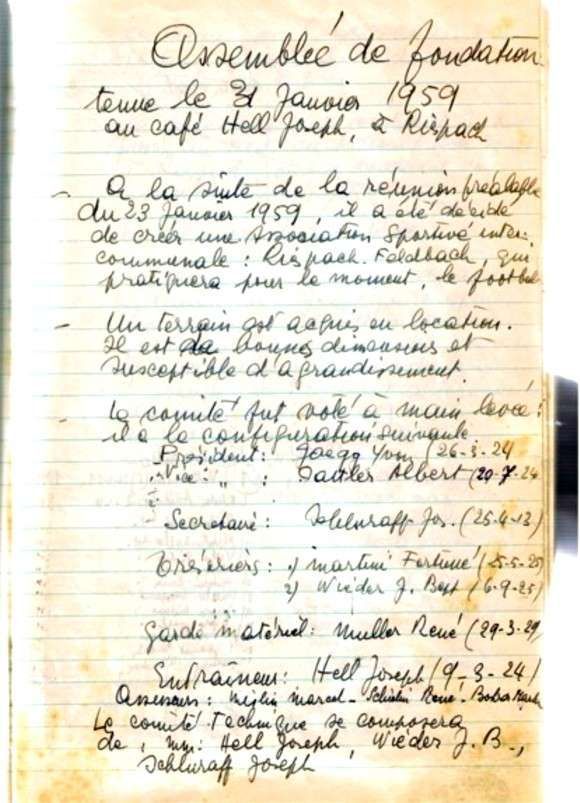 Assemblée de fondation
tenue le 31 Janvier 1959
au café Hell Joseph, à Rispach
- A la suite de la réunion préalable
du 23 Janvier 1959, il a été décidé
de créer une Association Sportive inter-
communale : Rispach-Feldbach, qui
pratiquera pour le moment, le football
- Un terrain est acquis en location.
Il est de bonnes dimensions et
susceptible d'agrandissement.
- Le comité fut voté à main levée :
il a la configuration suivante
Président : Jaegg Yvon (26-3-24
Vice- " : Sattler Albert (20-7-24
Secrétaire : Schluraff Jos. (25-4-13)
Trésoriers : 1) Martini Fortuné (25-5-25)
2) Wieder J. Bapt (6-9-25)
Garde matériel : Muller René (29-3-29)
Entraîneur : Hell Joseph (9-3-24)
Assesseurs : Miglin Marcel - René -
Le comité Technique se composera
de, MM : Hell Joseph, Wieder J. B.,
Schluraff Joseph